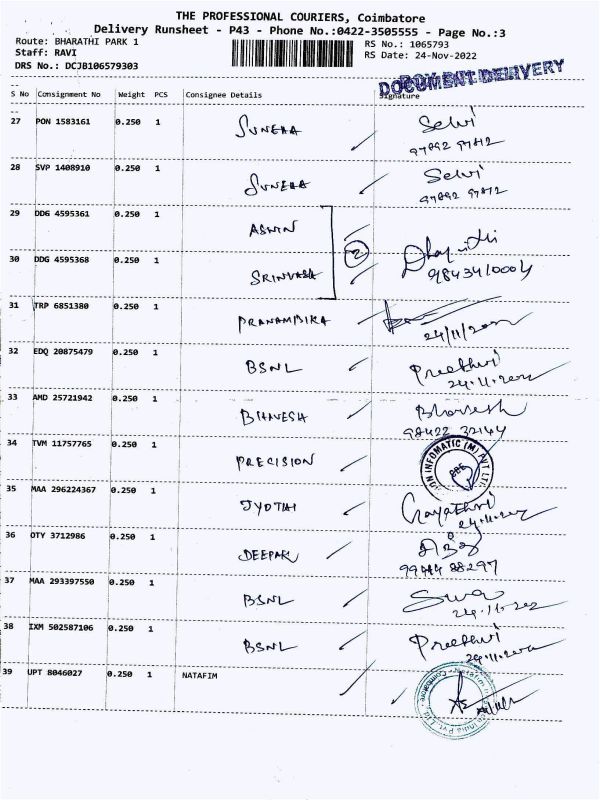 THE PROFESSIONAL COURIERS, Coimbatore
Delivery Runsheet - P43 - Phone No.:0422-3505555 - Page No.:3
Route: BHARATHI PARK 1
RS No.: 1065793
Staff: RAVI
RS Date: 24-Nov-2022
DRS No.: DCJB106579303
DOCUMENT DELIVERY
S No Consignment No Weight PCS Consignee Details Signature
27 PON 1583161 0.250 1 SUNEHA Selvi
97892 97812
28 SVP 1408910 0.250 1 SUNEHA Selvi
97892 97812
29 DDG 4595361 0.250 1 ASWIN
2
30 DDG 4595368 0.250 1 SRINIVASA
9843410004
31 TRP 6851380 0.250 1 PRANAMBIKA
24/11/2022
32 EDQ 20875479 0.250 1 BSNL Preethvi
24.11.2022
33 AMD 25721942 0.250 1 BHAVESH Bhavesh
98422 32144
34 TVM 11757765 0.250 1 PRECISION
ON INFOMATIC (M) PVT LTD
35 MAA 296224367 0.250 1 JYOTHI Gayathri
24.11.2022
36 OTY 3712986 0.250 1 DEEPAK
99444 88297
37 MAA 293397550 0.250 1 BSNL
24.11.2022
38 IXM 502587106 0.250 1 BSNL Preethvi
24.11.2022
39 UPT 8046027 0.250 1 NATAFIM